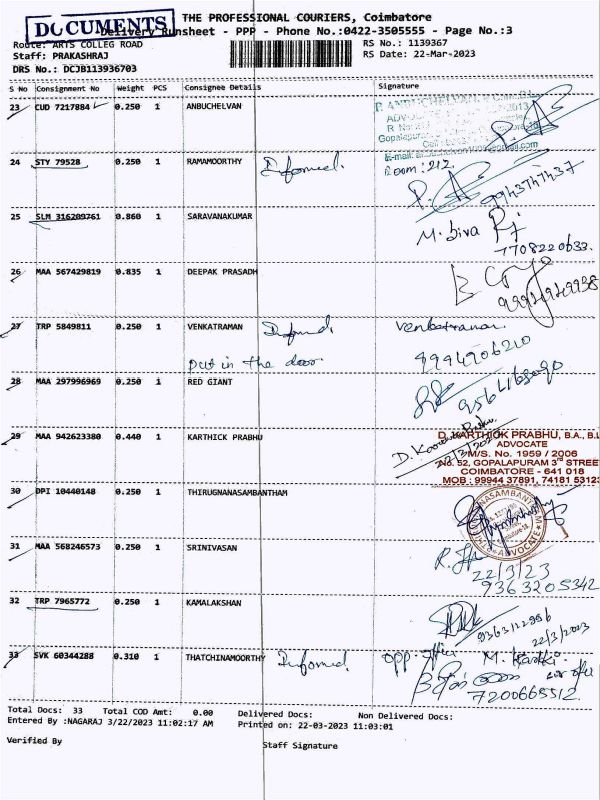 DOCUMENTS
THE PROFESSIONAL COURIERS, Coimbatore
Delivery Runsheet - PPP - Phone No.:0422-3505555 - Page No.:3
Route: ARTS COLLEG ROAD
RS No.: 1139367
Staff: PRAKASHRAJ
RS Date: 22-Mar-2023
DRS No.: DCJB113936703
S No Consignment No Weight PCS Consignee Details Signature
23 CUD 7217884 0.250 1 ANBUCHELVAN
24 STY 79528 0.250 1 RAMAMOORTHY Informed. Room: 212
9943747437
25 SLM 316209761 0.860 1 SARAVANAKUMAR M. Siva
7708220633
26 MAA 567429819 0.835 1 DEEPAK PRASADH
27 TRP 5849811 0.250 1 VENKATRAMAN Informed. Venkatraman
Put in the door 9994906210
28 MAA 297996969 0.250 1 RED GIANT
29 MAA 942623380 0.440 1 KARTHICK PRABHU
22/3/23
D. KARTHICK PRABHU, B.A., B.L
ADVOCATE
M/S. No. 1959 / 2006
No. 52, GOPALAPURAM 3rd STREET
COIMBATORE - 641 018
MOB : 99944 37891, 74181 53123
30 DPI 10440148 0.250 1 THIRUGNANASAMBANTHAM
ADVOCATE
31 MAA 568246573 0.250 1 SRINIVASAN
22/3/23
9363205342
32 TRP 7965772 0.250 1 KAMALAKSHAN
9363112996
22/3/2023
33 SVK 60344288 0.310 1 THATCHINAMOORTHY Informed. opp. office M. Karthi.
7200668512
Total Docs: 33 Total COD Amt: 0.00 Delivered Docs: Non Delivered Docs:
Entered By :NAGARAJ 3/22/2023 11:02:17 AM Printed on: 22-03-2023 11:03:01
Verified By Staff Signature